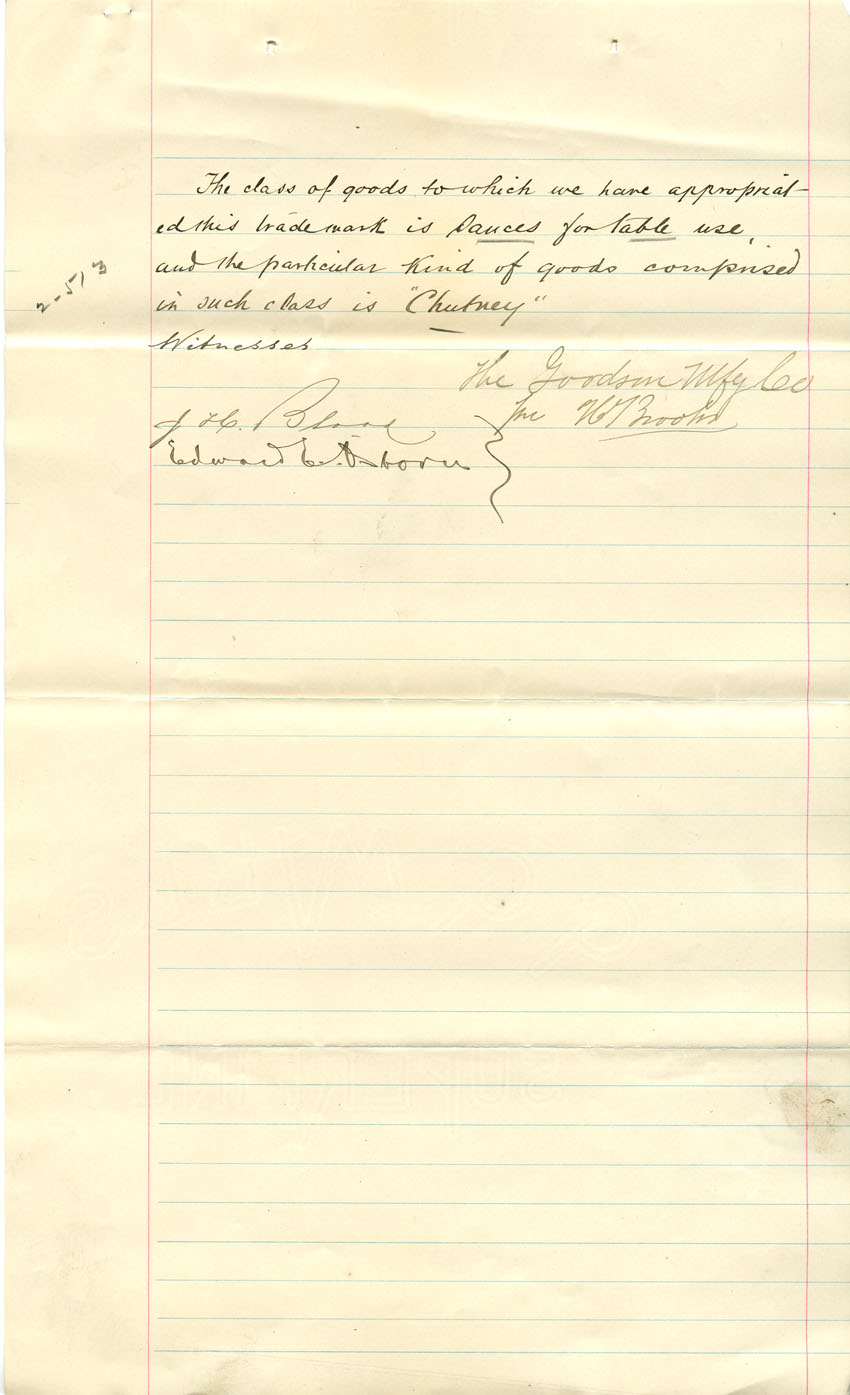 The class of goods to which we have appropriat-
ed this trade mark is Sauces for table use,
and the particular kind of goods comprised
in such class is "Chutney"
2-513
Witnesses
The Goodson Mfg Co
J. H. Blood
Edward E. Osborn